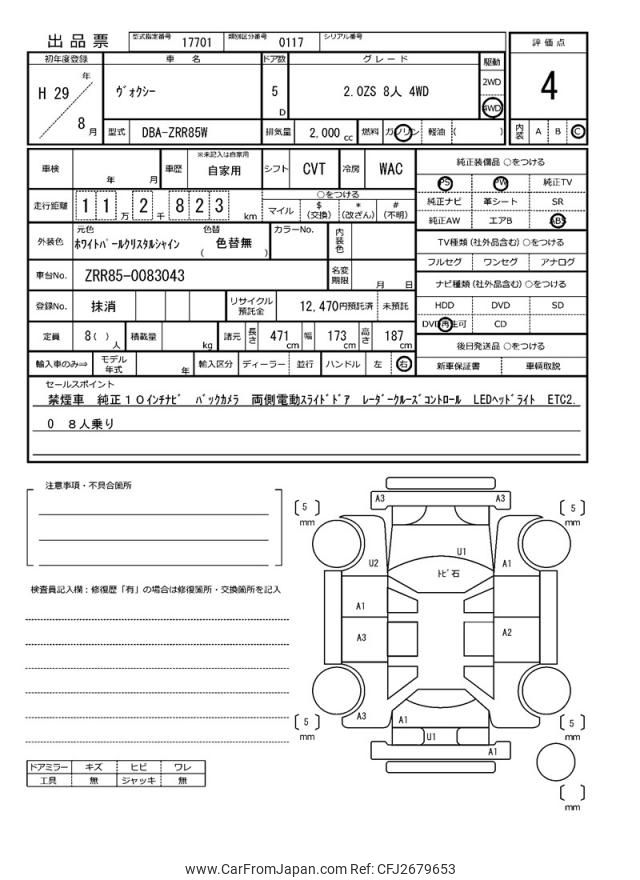 出品票 型式指定番号 17701 類別区分番号 0117 シリアル番号
評価点
4
内装 A B C
初年度登録 車名 ドア数 グレード 駆動
H 29 年 8 月
ヴォクシー 5 D 2.0ZS 8人 4WD
2WD
4WD
型式 DBA-ZRR85W 排気量 2,000 cc 燃料 ガソリン 軽油 ( )
車検 年 月 車歴 ※未記入は自家用 自家用 シフト CVT 冷房 WAC
走行距離 11万2千823 km
○をつける
マイル $(交換) *(改ざん) #(不明)
外装色 元色 ホワイトパールクリスタルシャイン 色替 ( 色替無 ) カラーNo. 内装色
車台No. ZRR85-0083043 名変期限 月 日
登録No. 抹消 リサイクル預託金 12,470円預託済 未預託
定員 8( )人 積載量 kg 諸元 長さ 471 cm 幅 173 cm 高さ 187 cm
輸入車のみ⇒ モデル年式 年 輸入区分 ディーラー 並行 ハンドル 左 右
純正装備品 ○をつける
PS PW 純正TV
純正ナビ 革シート SR
純正AW エアB ABS
TV種類(社外品含む)○をつける
フルセグ ワンセグ アナログ
ナビ種類(社外品含む)○をつける
HDD DVD SD
DVD再生可 CD
後日発送品 ○をつける
新車保証書 車輌取説
セールスポイント
禁煙車 純正10インチナビ バックカメラ 両側電動スライドドア レーダークルーズコントロール LEDヘッドライト ETC2.
0 8人乗り
注意事項・不具合箇所
検査員記入欄:修復歴「有」の場合は修復箇所・交換箇所を記入
ドアミラー キズ ヒビ ワレ
工具 無 ジャッキ 無
A3 A3
[5] mm [5] mm
U2 U1 A1
トビ石
A1
A3 A2
A3 A1
[5] mm U1 A1 [5] mm
[ ] mm
www.CarFromJapan.com Ref: CFJ2679653